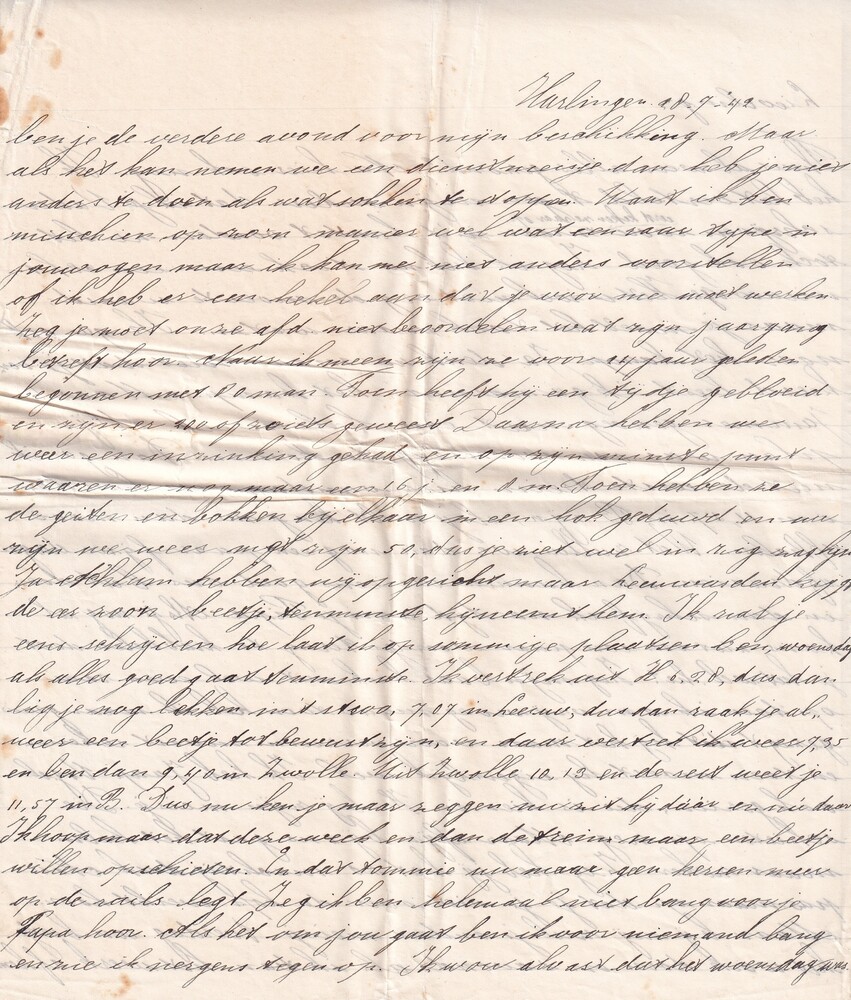 Harlingen 28-7-'42
ben je de verdere avond voor mijn beschikking. Maar
als het kan nemen we een dienstmeisje dan heb je niet
anders te doen als wat sokken te stoppen. Want ik ben
misschien op zo'n manier wel wat een raar type in
jouw ogen maar ik kan me niet anders voorstellen
of ik heb er een hekel aan dat je voor me moet werken
Zeg je moet onze afd niet beoordelen wat zijn jaargang
betreft hoor. Maar ik meen zijn ze voor 14 jaar geleden
begonnen met 80 man. Toen heeft hij een tijdje gebloeid
en zijn er 100 of zoiets geweest Daarna hebben we
weer een inzinking gehad en op zijn minste punt
waaren er nog maar een 16 j. en 0 m. Toen hebben ze
de geiten en bokken bij elkaar in een hok geduwd en nu
zijn we weer met zijn 50, dus je ziet wel in zig zag lijn
Ja hebben wij opgericht maar Leeuwarden krijgt
de eer zoon beetje, tenminste, hij neemt hem. Ik zal je
eens schrijven hoe laat ik op sommige plaatsen ben, woensdag
als alles goed gaat tenminste. Ik vertrek uit H 6.28, dus dan
lig je nog lekker in 't stroo, 7,07 in Leeuw, dus dan raak je al,
weer een beetje tot bewustzijn, en daar vertrek ik weer 7,35
en ben dan 9,40 in Zwolle. Uit Zwolle 10,13 en de rest weet je
11,57 in B. Dus nu ken je maar zeggen nu zit hij dáár en nú daar
Ik hoop maar dat deze week en dan de trein maar een beetje
willen opschieten. En dat tommie nu maar geen kersen meer
op de rails legt Zeg ik ben helemaal niet bang voor je
Papa hoor. Als het om jou gaat ben ik voor niemand bang
en zie ik nergens tegen op. Ik wou alvast dat het woensdag was.